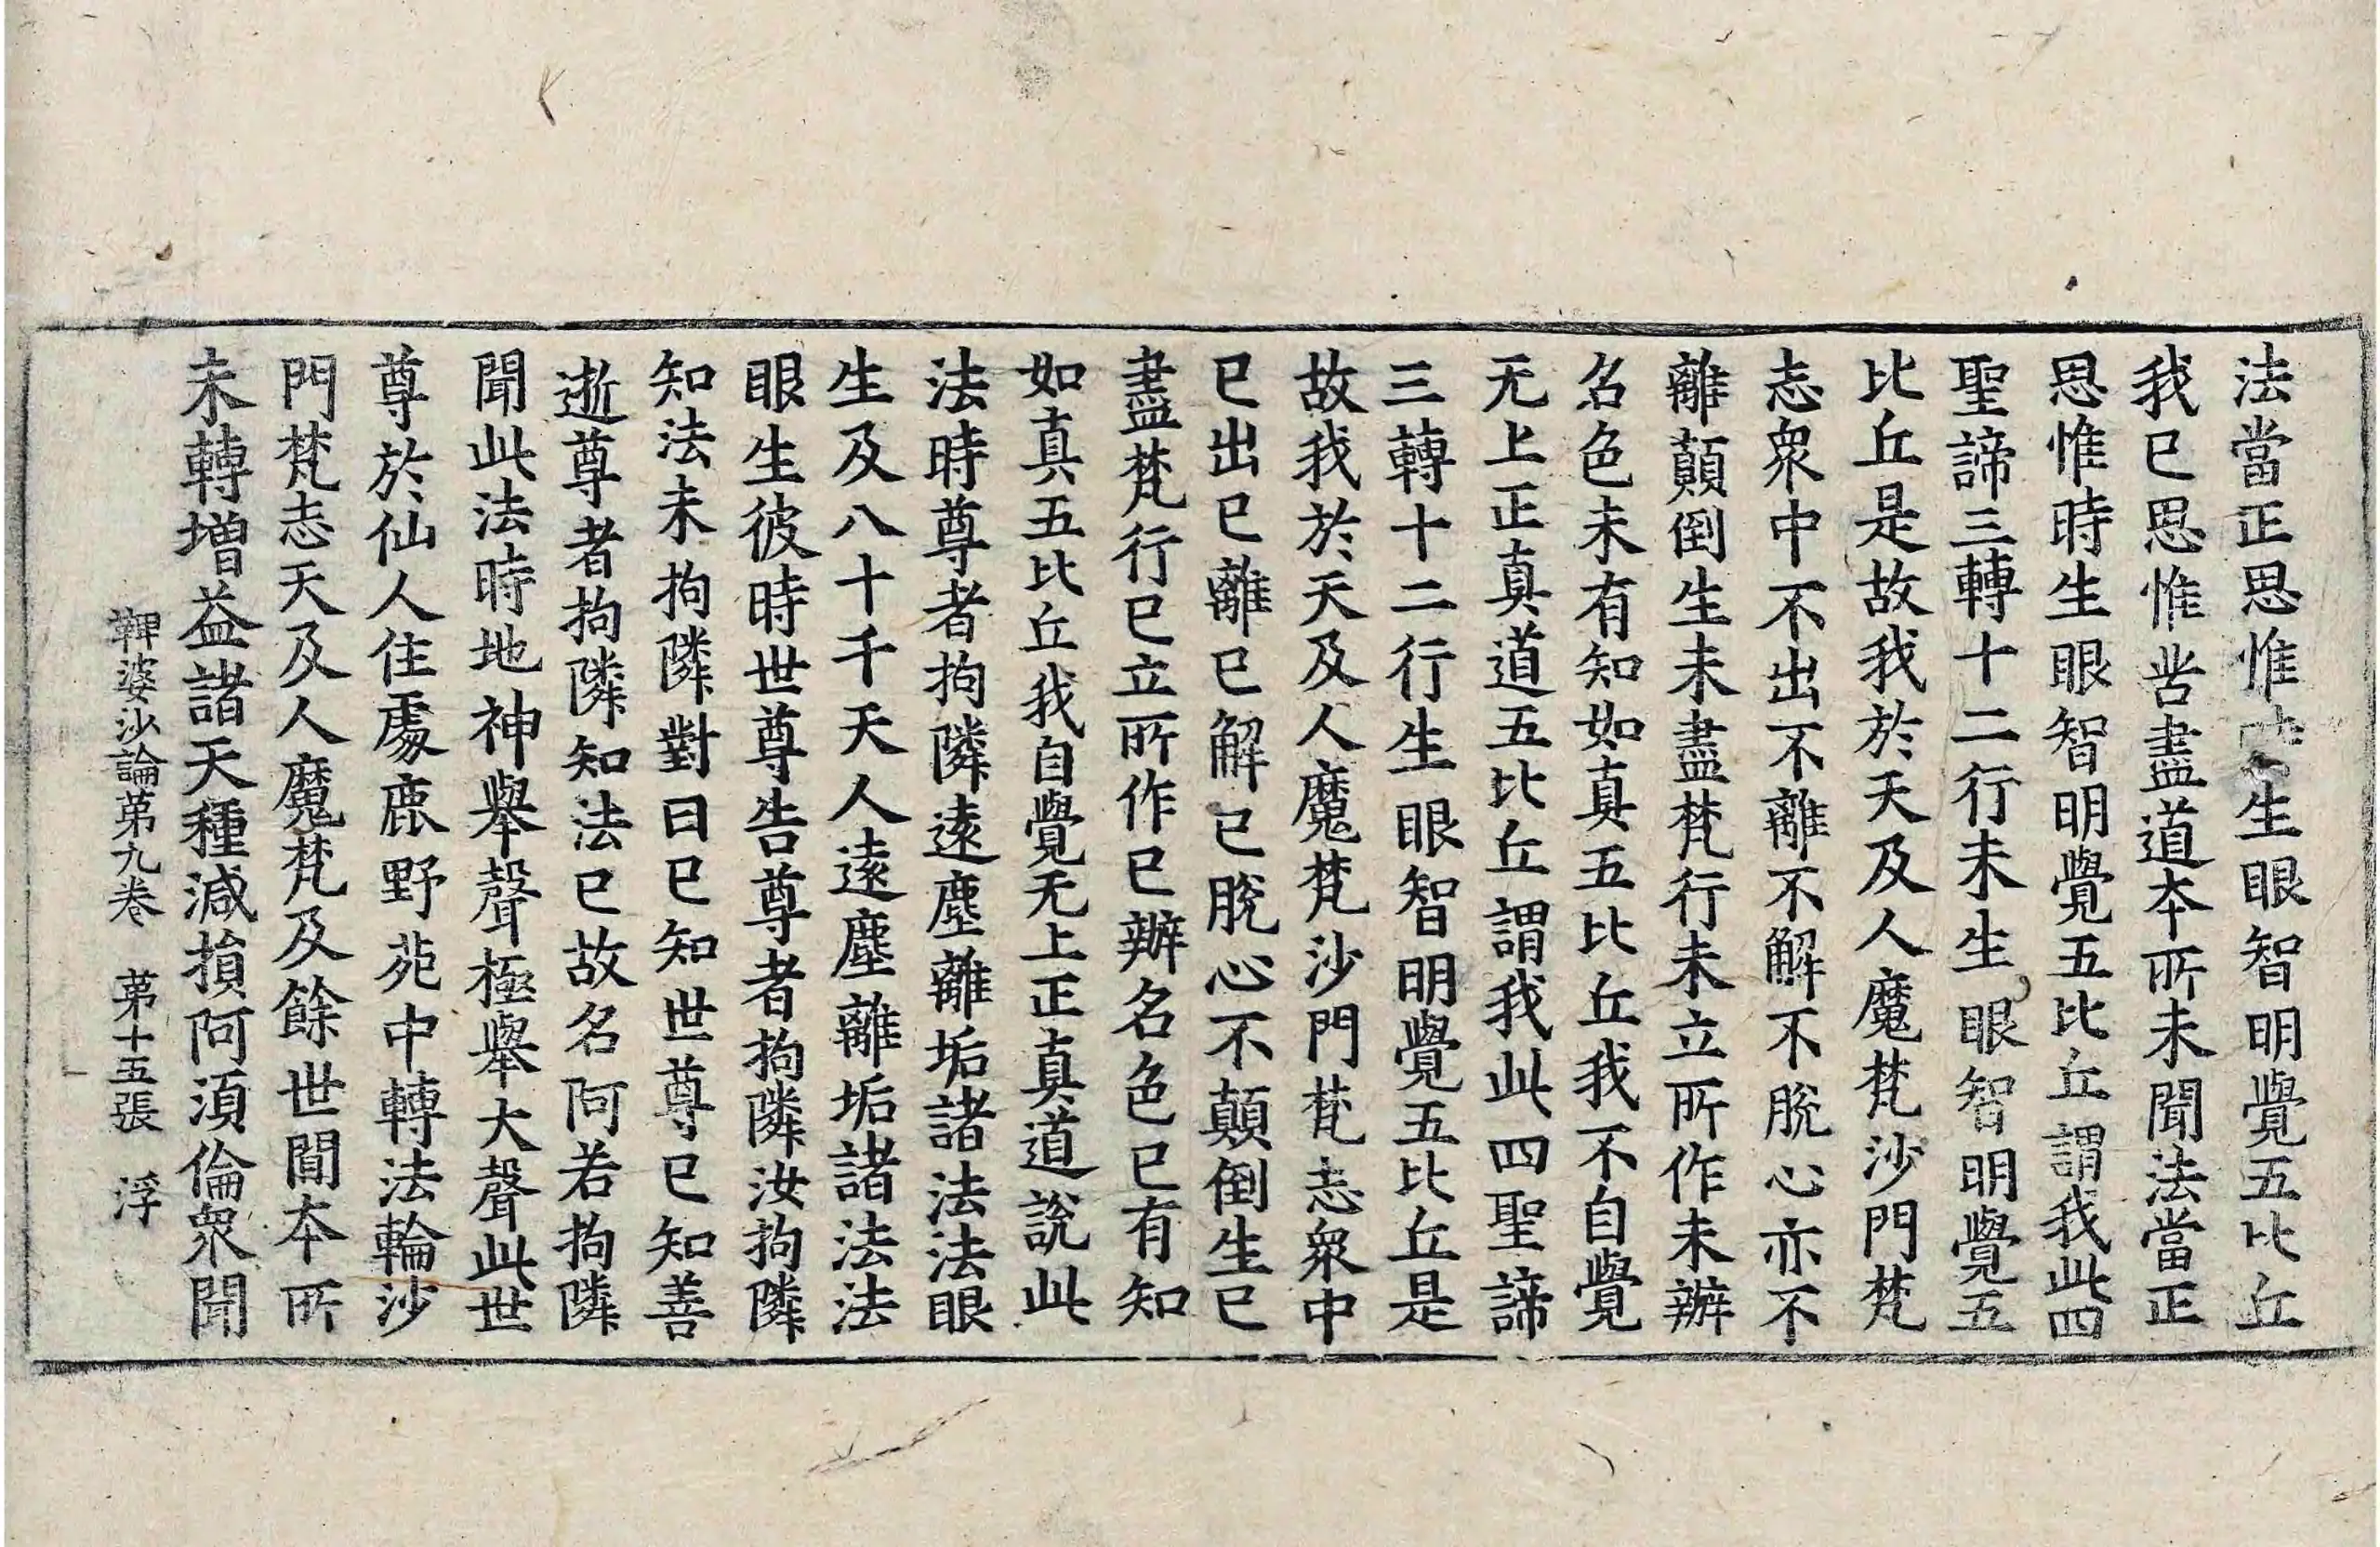 法當正思惟生眼智明覺五比丘
我已思惟苦盡道本所未聞法當正
思惟時生眼智明覺五比丘謂我此四
聖諦三轉十二行未生眼智明覺五
比丘是故我於天及人魔梵沙門梵
志衆中不出不離不解不脫心亦不
離顛倒生未盡梵行未立所作未辦
名色未有知如真五比丘我不自覺
无上正真道五比丘謂我此四聖諦
三轉十二行生眼智明覺五比丘是
故我於天及人魔梵沙門梵志衆中
已出已離已解已脫心不顛倒生已
盡梵行已立所作已辦名色已有知
如真五比丘我自覺无上正真道說此
法時尊者拘隣遠塵離垢諸法法眼
生及八十千天人遠塵離垢諸法法
眼生彼時世尊告尊者拘隣汝拘隣
知法未拘隣對曰已知世尊已知善
逝尊者拘隣知法已故名阿若拘隣
聞此法時地神舉聲極舉大聲此世
尊於仙人住處鹿野苑中轉法輪沙
門梵志天及人魔梵及餘世間本所
未轉增益諸天種減損阿須倫衆聞
鞞婆沙論苐九卷　苐十五張　浮